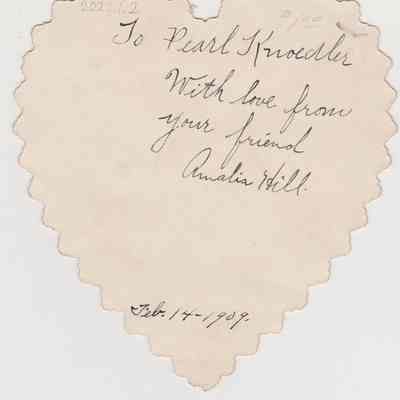 To Pearl Knoedler
With love from
your friend
Amalia Hill.
Feb. 14-1909.